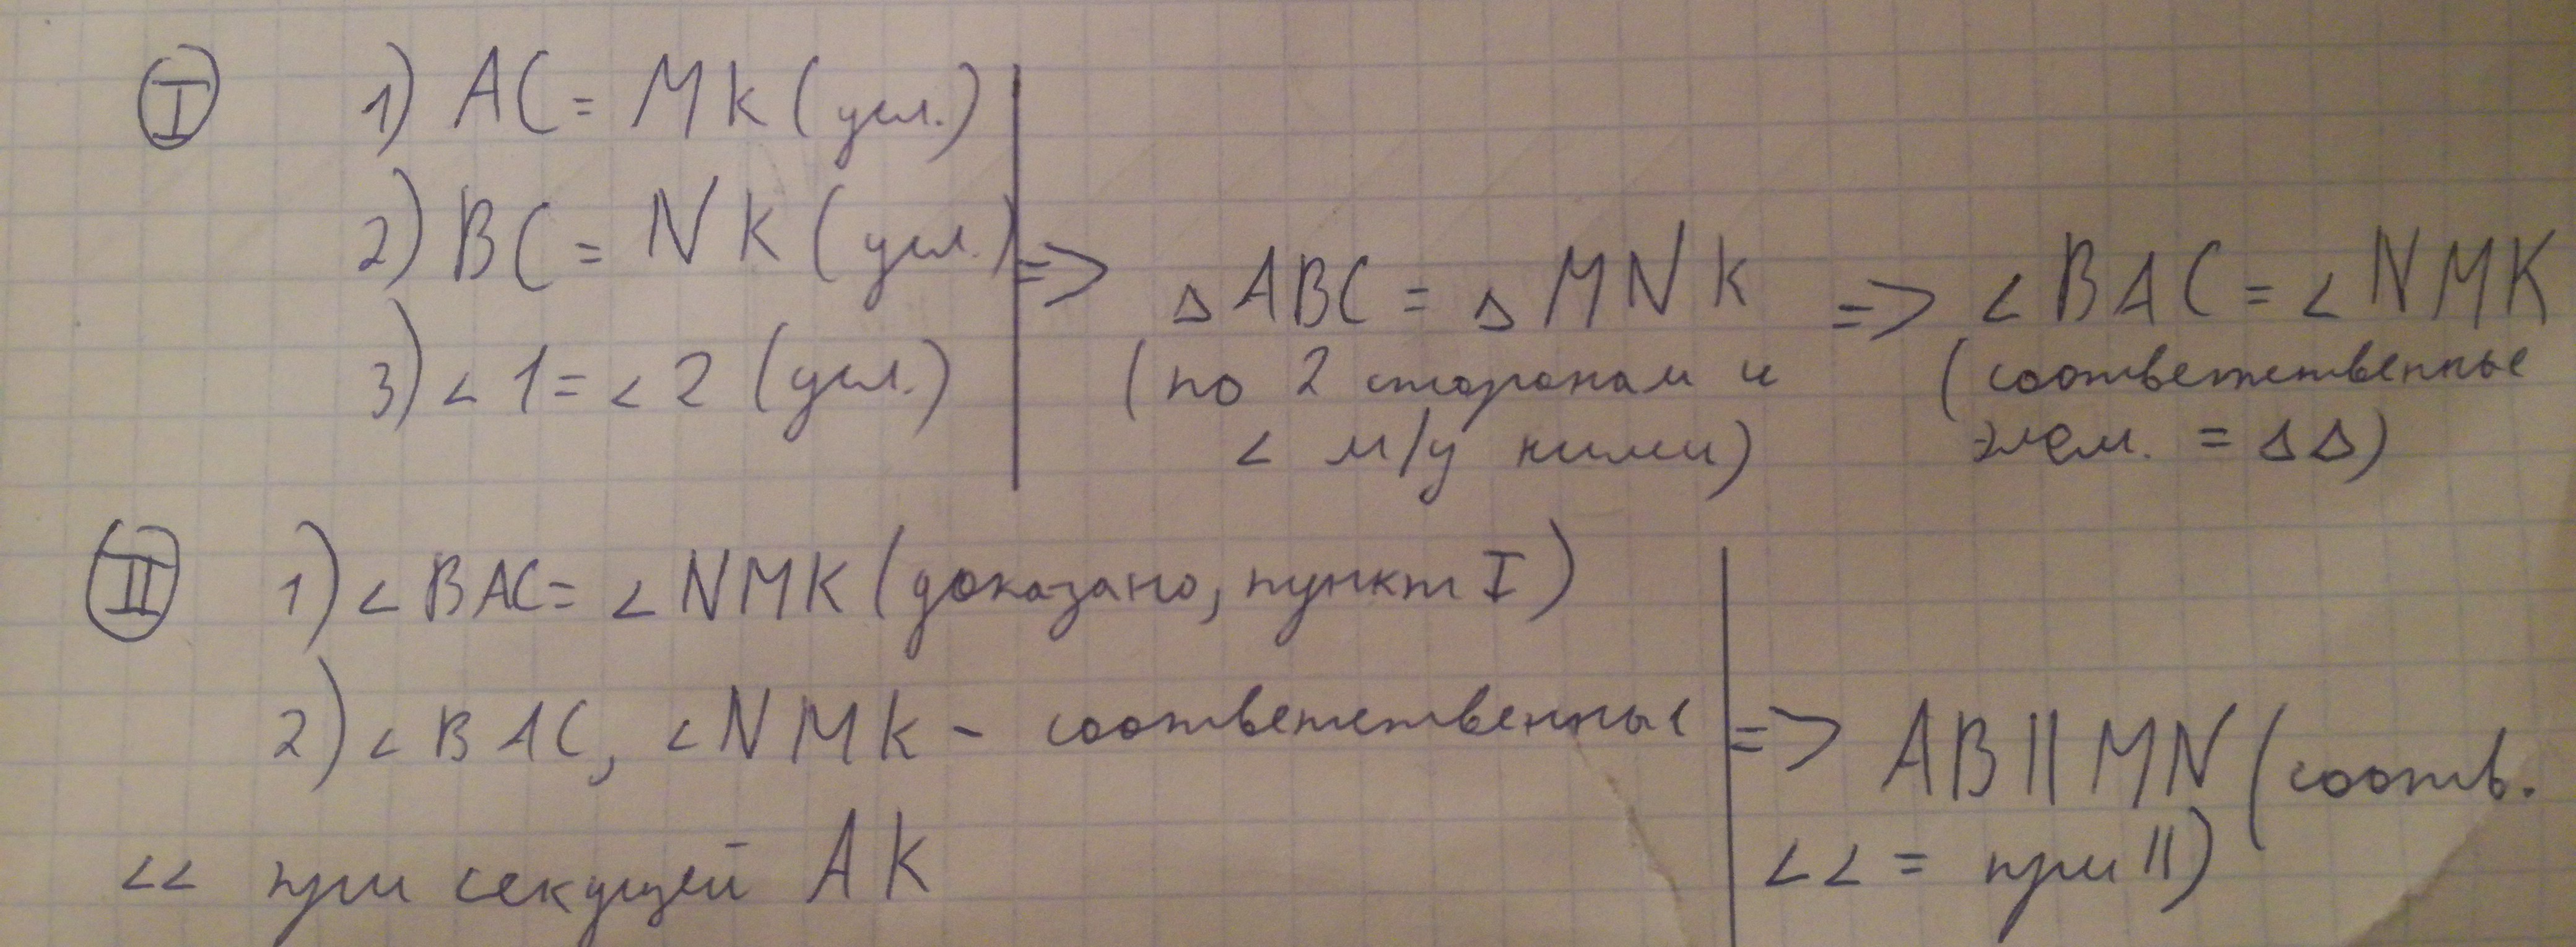 I 1) AC = MK (усл.)
2) BC = NK (усл.) => △ABC = △MNK => ∠BAC = ∠NMK
3) ∠1 = ∠2 (усл.) (по 2 сторонам и (соответственные
∠ м/у ними) элем. = △△)
II 1) ∠BAC = ∠NMK (доказано, пункт I)
2) ∠BAC, ∠NMK - соответственные => AB || MN (соотв.
∠∠ при секущей AK ∠∠ = при ||)